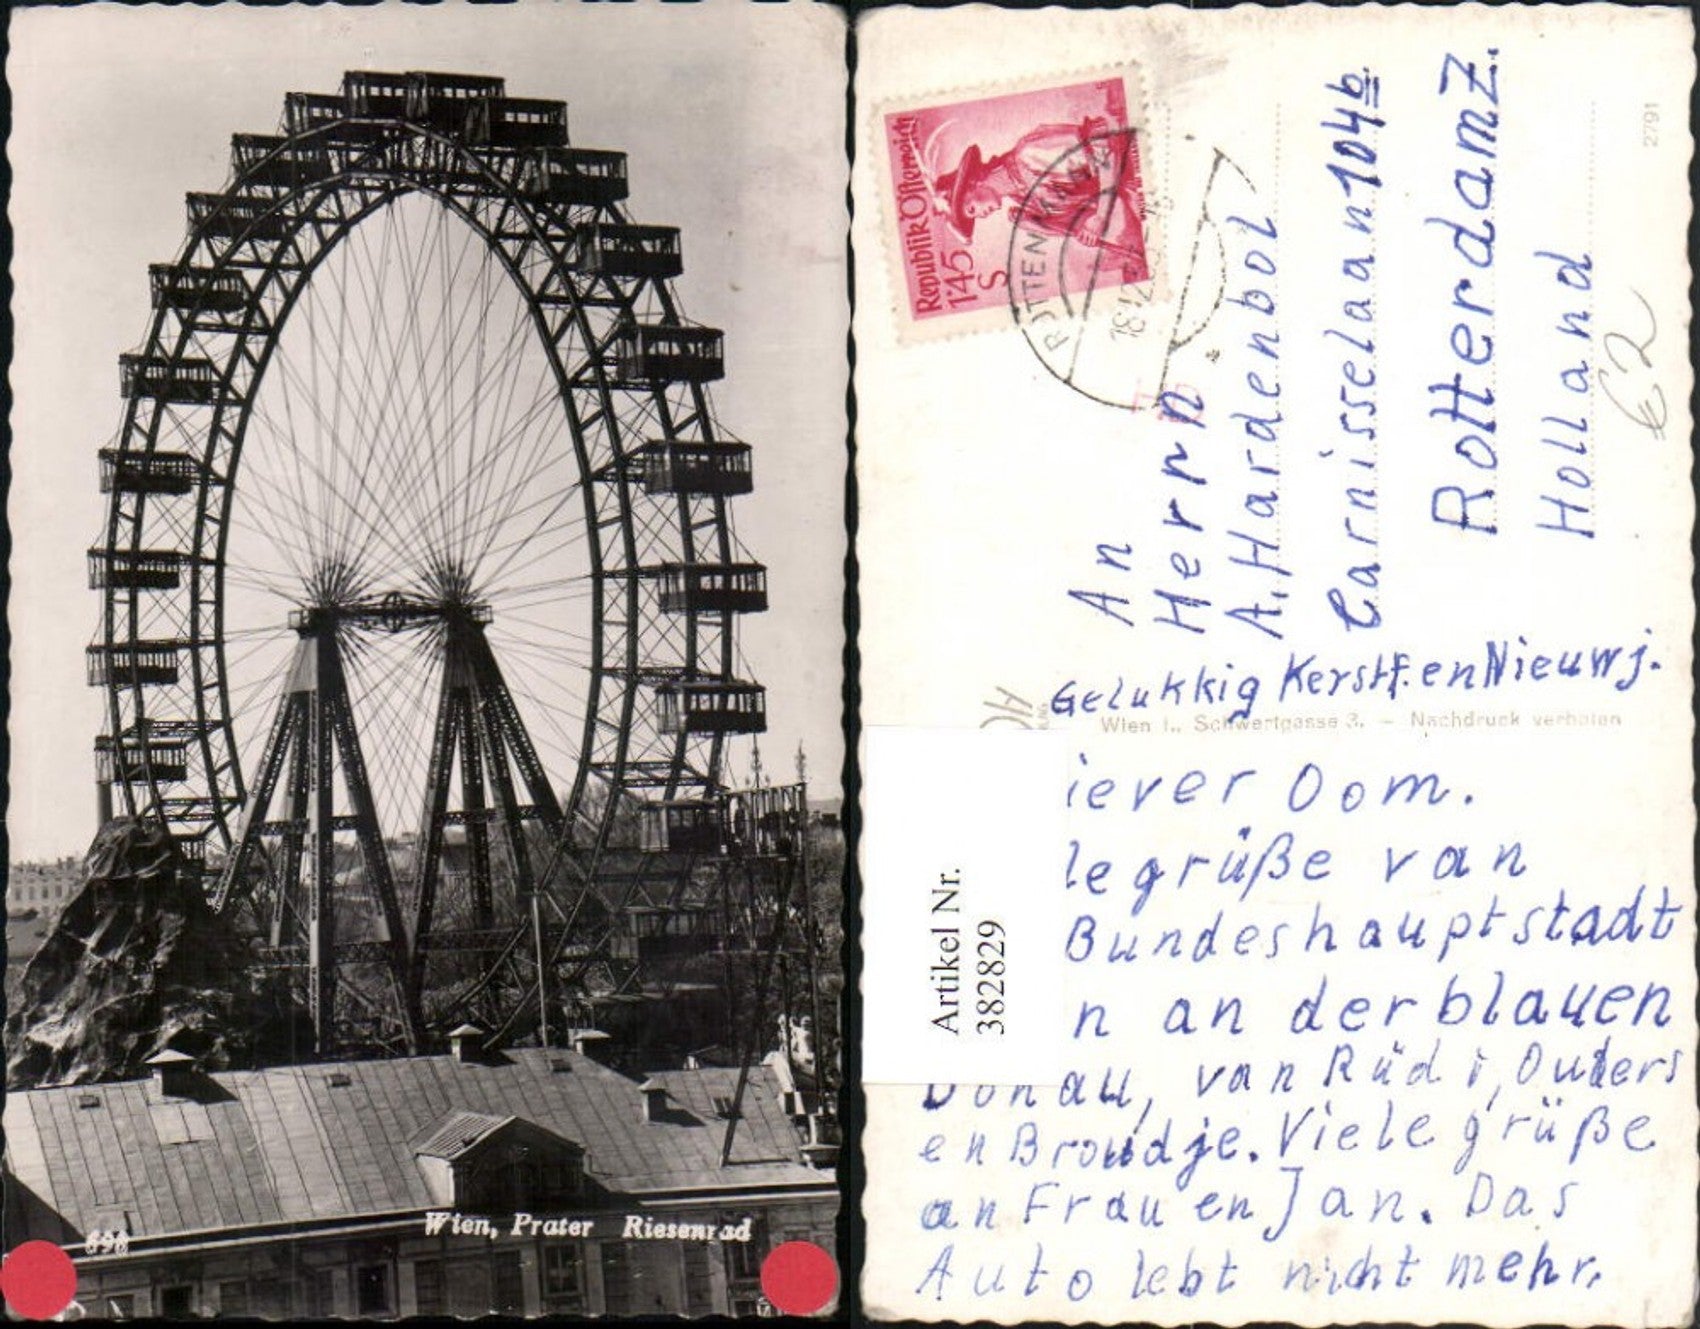 696
Wien, Prater Riesenrad
Republik Österreich
1'45
S
ROTTENMANN
2791
€2
An
Herrn
A. Hardenbol
Carnisselaan 104b.
Rotterdam Z.
Holland
Gelukkig Kerstf. en Nieuwj.
Wien I., Schwertgasse 3. – Nachdruck verboten
Artikel Nr.
382829
iever Oom.
le grüße van
Bundeshauptstadt
n an der blauen
Donau, van Rüdi, Ouders
en Broudje. Viele grüße
an Frau en Jan. Das
Auto lebt nicht mehr.